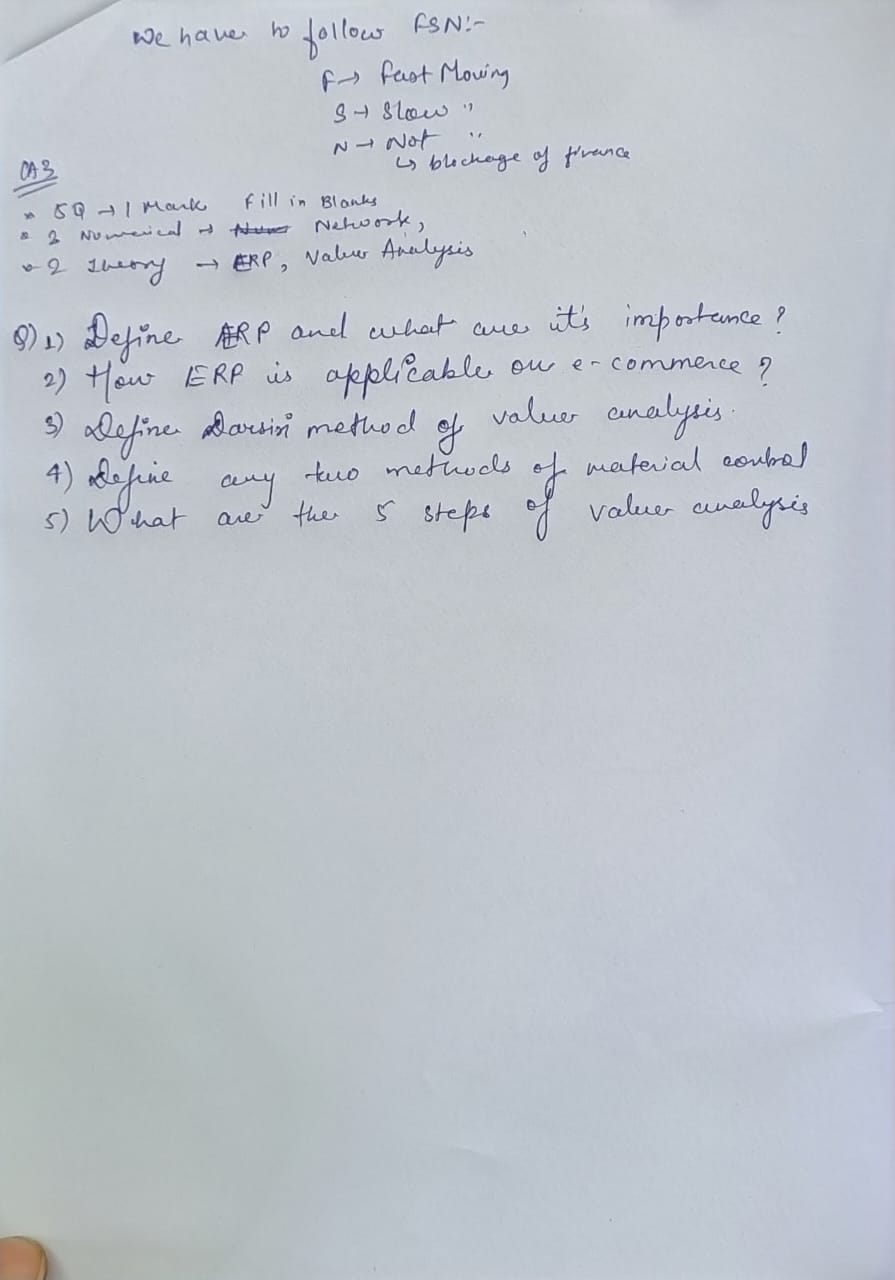 We have to follow FSN:-
F → Fast Moving
S → Slow "
N → Not "
↳ blockage of finance
CA3
* 5Q → 1 Mark Fill in Blanks
* 3 Numerical → Network,
* 2 Theory → ERP, Value Analysis
Q) 1) Define ERP and what are it's importance?
2) How ERP is applicable on e-commerce?
3) Define Darsiri method of value analysis.
4) Define any two methods of material control
5) What are the 5 steps of value analysis